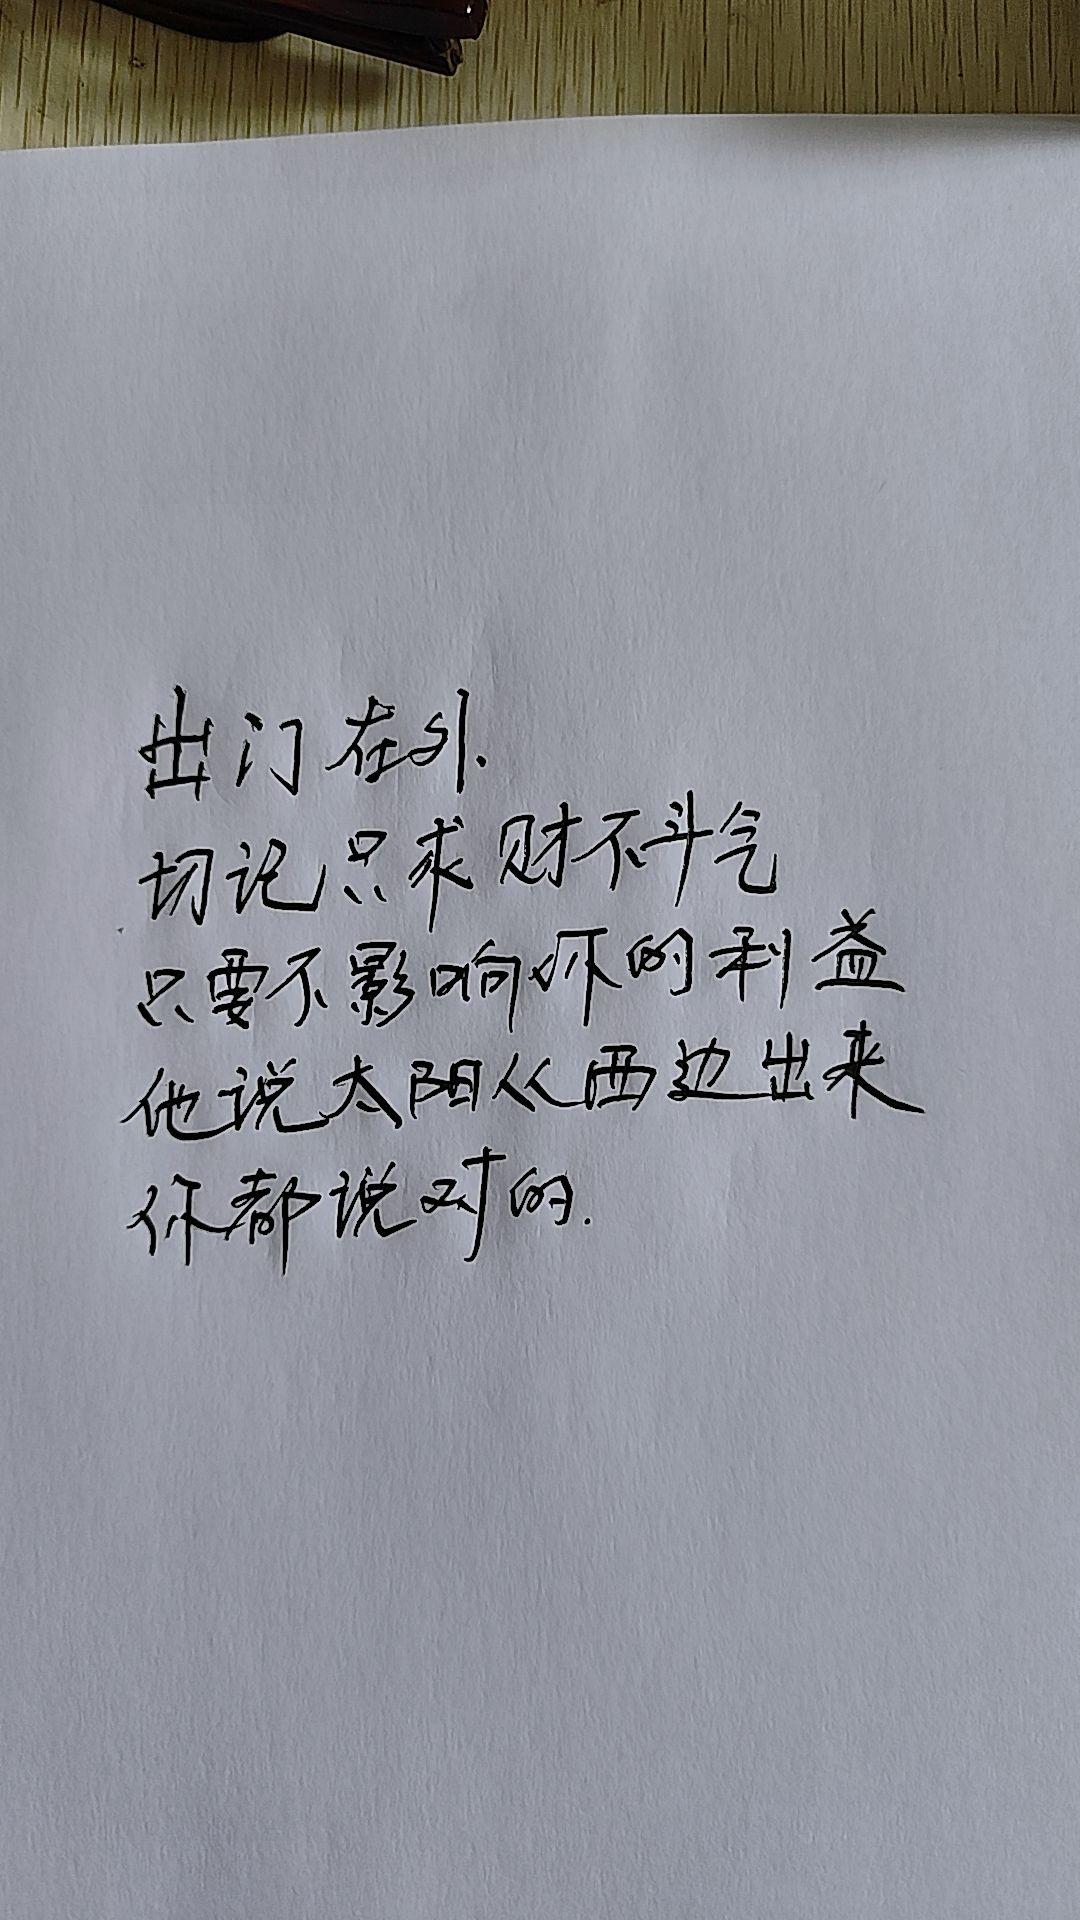 出门在外.
切记只求财不斗气
只要不影响你的利益
他说太阳从西边出来
你都说对的.